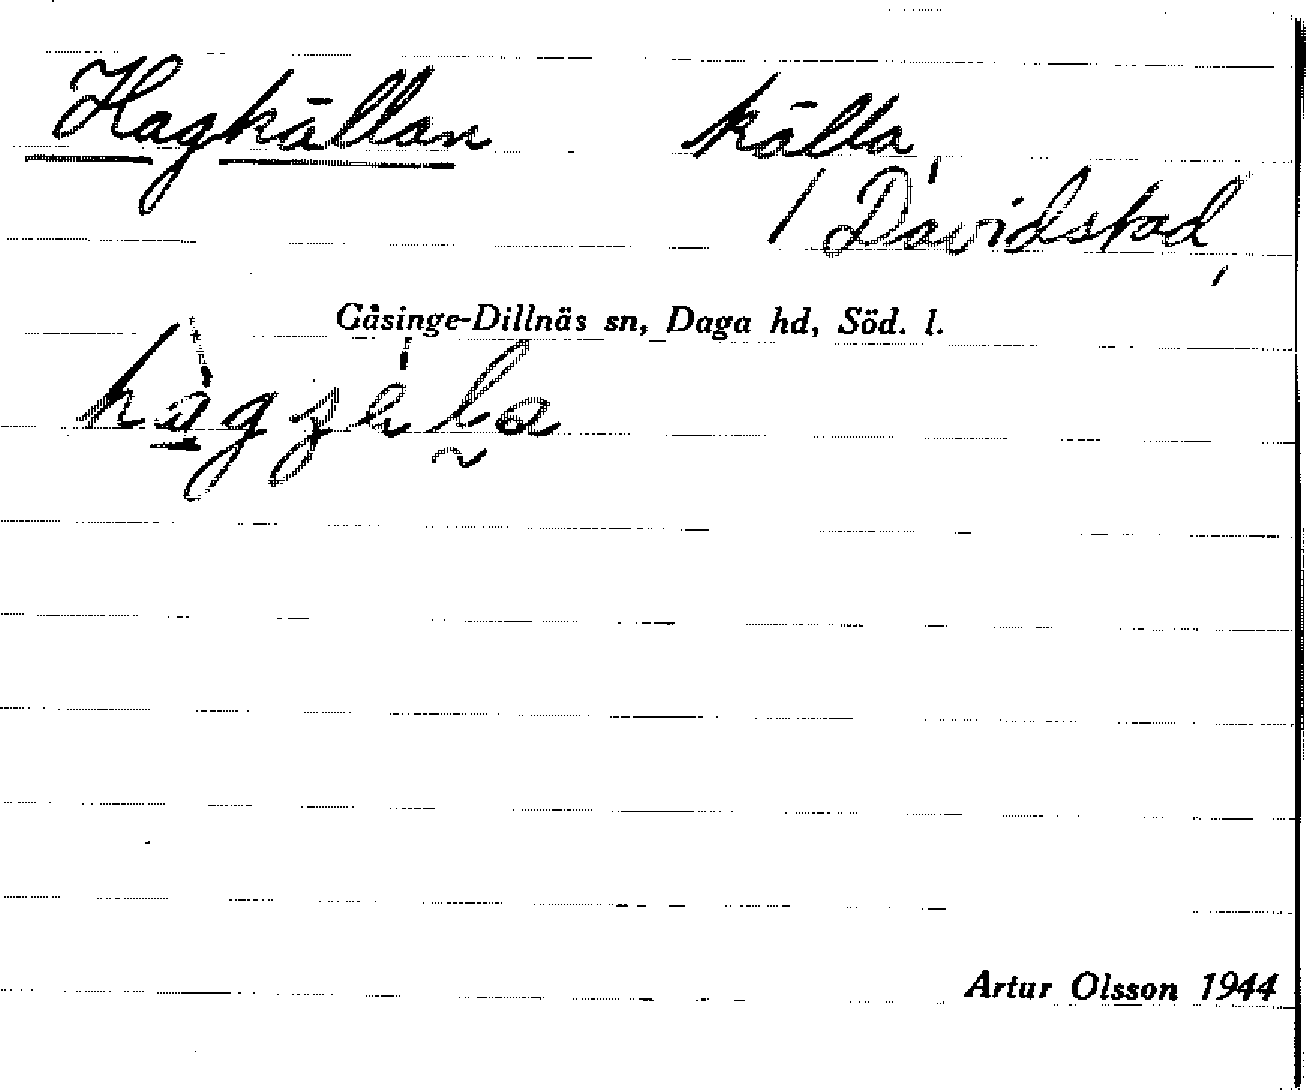 Hagkällan källa,
/ Davidstad,
Gåsinge-Dillnäs sn, Daga hd, Söd. l.
Artur Olsson 1944